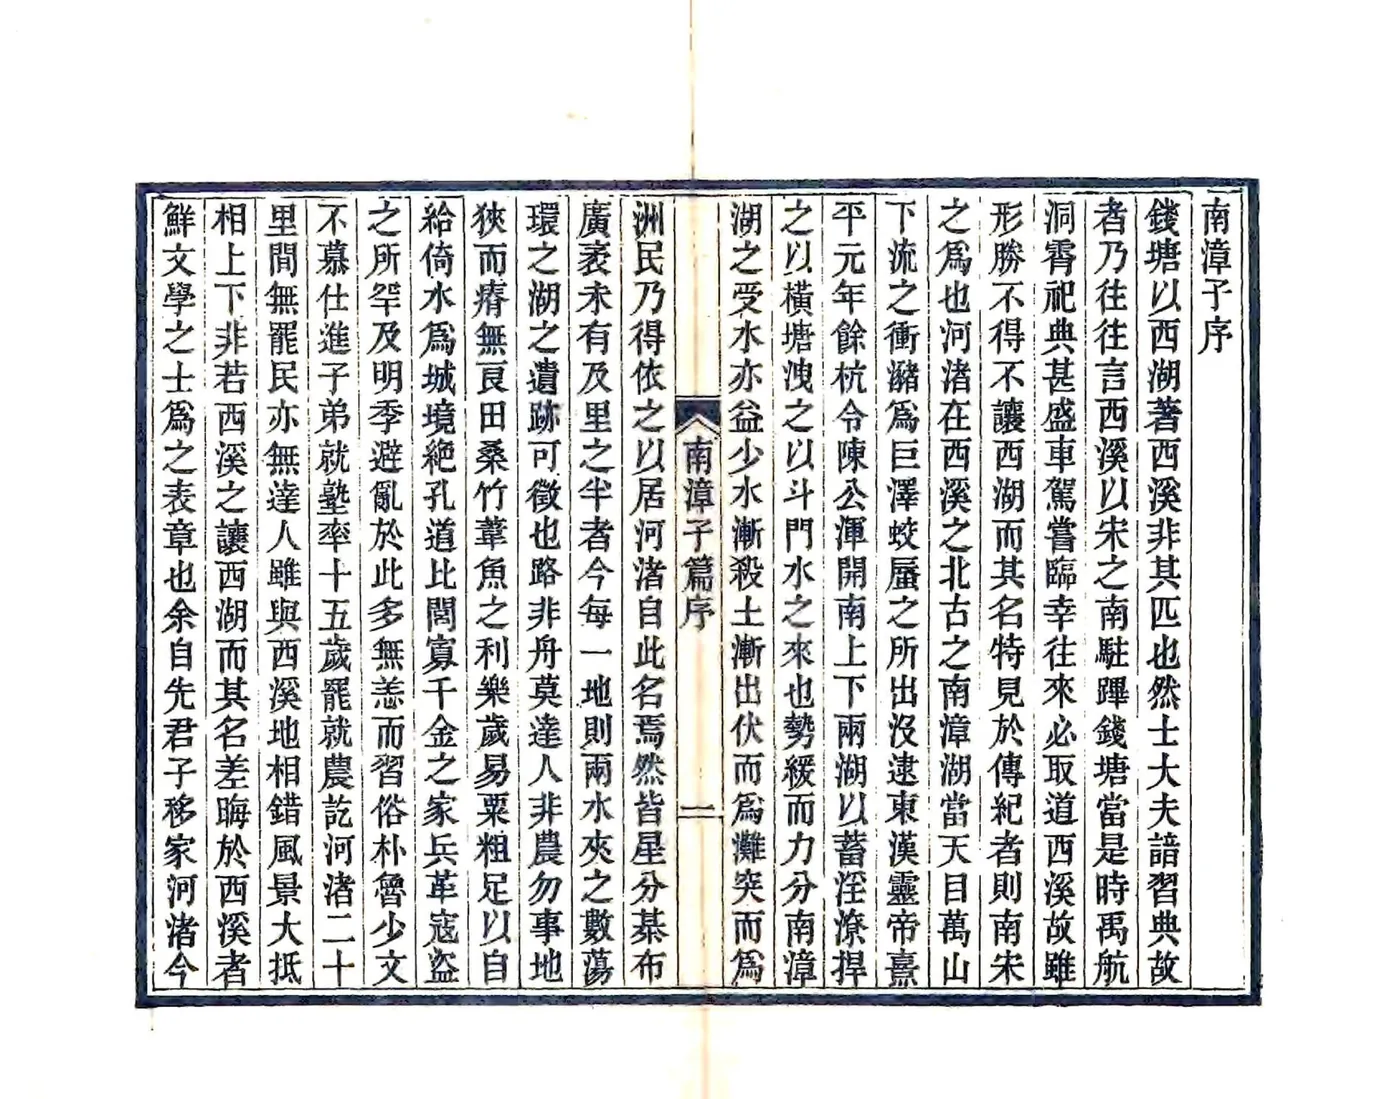 南漳子序
錢塘以西湖著西溪非其匹也然士大夫諳習典故
者乃往往言西溪以宋之南駐蹕錢塘當是時禹航
洞霄祀典甚盛車駕嘗臨幸往來必取道西溪故雖
形勝不得不讓西湖而其名特見於傳紀者則南宋
之爲也河渚在西溪之北古之南漳湖當天目萬山
下流之衝瀦爲巨澤蛟蜃之所出沒逮東漢靈帝熹
平元年餘杭令陳公渾開南上下兩湖以蓄淫潦捍
之以橫塘洩之以斗門水之來也勢緩而力分南漳
湖之受水亦益少水漸殺土漸出伏而爲灘突而爲
南漳子篇序
二
洲民乃得依之以居河渚自此名焉然皆星分棊布
廣袤未有及里之半者今每一地則兩水夾之數蕩
環之湖之遺跡可徵也路非舟莫達人非農勿事地
狹而瘠無良田桑竹葦魚之利樂歲易粟粗足以自
給倚水爲城境絶孔道比閭寡千金之家兵革寇盜
之所罕及明季避亂於此多無恙而習俗朴魯少文
不慕仕進子弟就塾率十五歲罷就農訖河渚二十
里間無罷民亦無達人雖與西溪地相錯風景大抵
相上下非若西溪之讓西湖而其名差晦於西溪者
鮮文學之士爲之表章也余自先君子移家河渚今